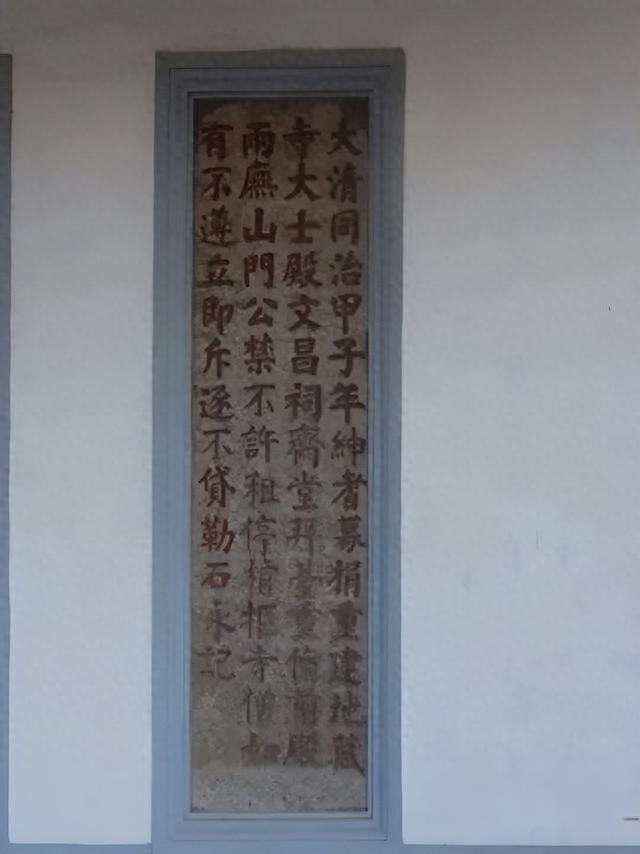 大清同治甲子年紳耆募捐重建地藏
寺大士殿文昌祠齋堂拜臺重脩前殿
兩廡山門公禁不許租停棺柩寺僧如
有不遵立即斥逐不貸勒石永記